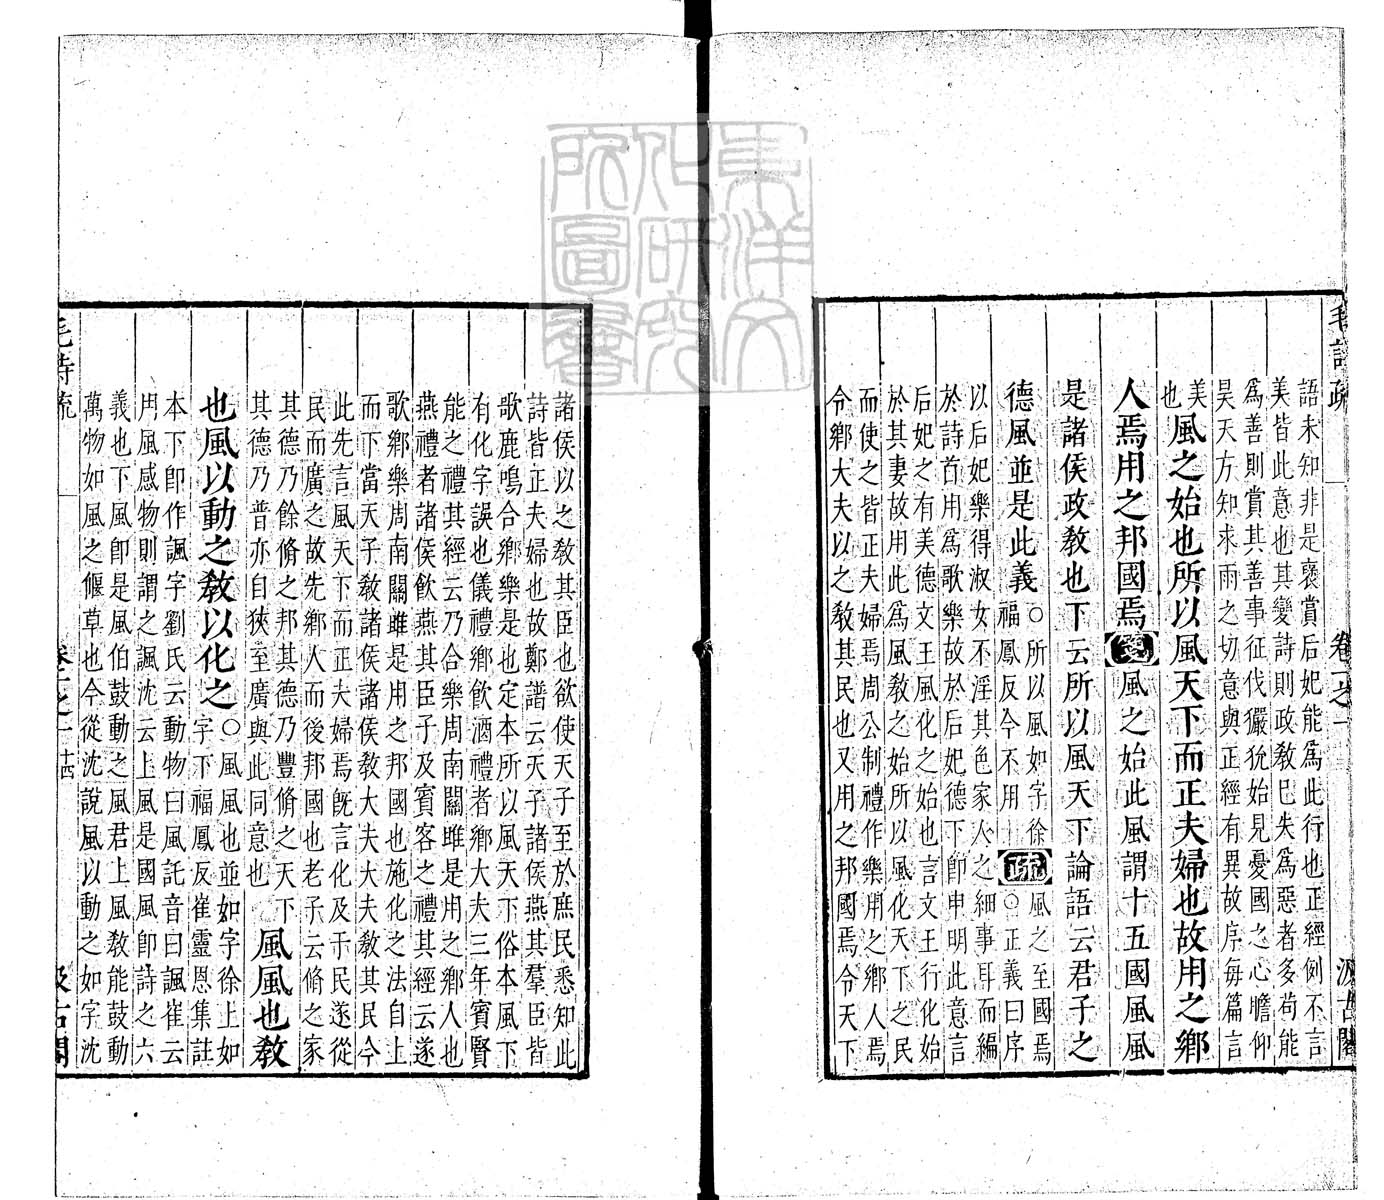 毛詩疏
卷一之一
汲古閣
語未知非是褒賞后妃能爲此行也正經例不言
美皆此意也其變詩則政敎巳失爲惡者多苟能
爲善則賞其善事征伐玁狁始見憂國之心瞻仰
昊天方知求雨之切意與正經有異故序每篇言
美
也
風之始也所以風天下而正夫婦也故用之鄉
人焉用之邦國焉箋風之始此風謂十五國風風
是諸侯政敎也下云所以風天下論語云君子之
德風並是此義
○所以風如字徐
福鳳反今不用
疏
風之至國焉
○正義曰序
以后妃樂得淑女不淫其色家人之細事耳而編
於詩首用爲歌樂故於后妃德下卽申明此意言
后妃之有美德文王風化之始也言文王行化始
於其妻故用此爲風敎之始所以風化天下之民
而使之皆正夫婦焉周公制禮作樂用之鄉人焉
令鄉大夫以之敎其民也又用之邦國焉令天下
諸侯以之敎其臣也欲使天子至於庶民悉知此
詩皆正夫婦也故鄭譜云天子諸侯燕其羣臣皆
歌鹿鳴合鄉樂是也定本所以風天下俗本風下
有化字誤也儀禮鄉飲酒禮者鄉大夫三年賓賢
能之禮其經云乃合樂周南關雎是用之鄉人也
燕禮者諸侯飲燕其臣子及賓客之禮其經云遂
歌鄉樂周南關雎是用之邦國也施化之法自上
而下當天子敎諸侯諸侯敎大夫大夫敎其民今
此先言風天下而正夫婦焉旣言化及于民遂從
民而廣之故先鄉人而後邦國也老子云脩之家
其德乃餘脩之邦其德乃豐脩之天下
其德乃普亦自狹至廣與此同意也
風風也敎
也風以動之敎以化之
○風風也並如字徐上如
字下福鳳反崔靈恩集註
本下卽作諷字劉氏云動物曰風託音曰諷崔云
用風感物則謂之諷沈云上風是國風卽詩之六
義也下風卽是風伯鼓動之風君上風敎能鼓動
萬物如風之偃草也今從沈說風以動之如字沈
毛詩疏
卷一之一
十四
汲古閣
東洋文
化研究
所圖書